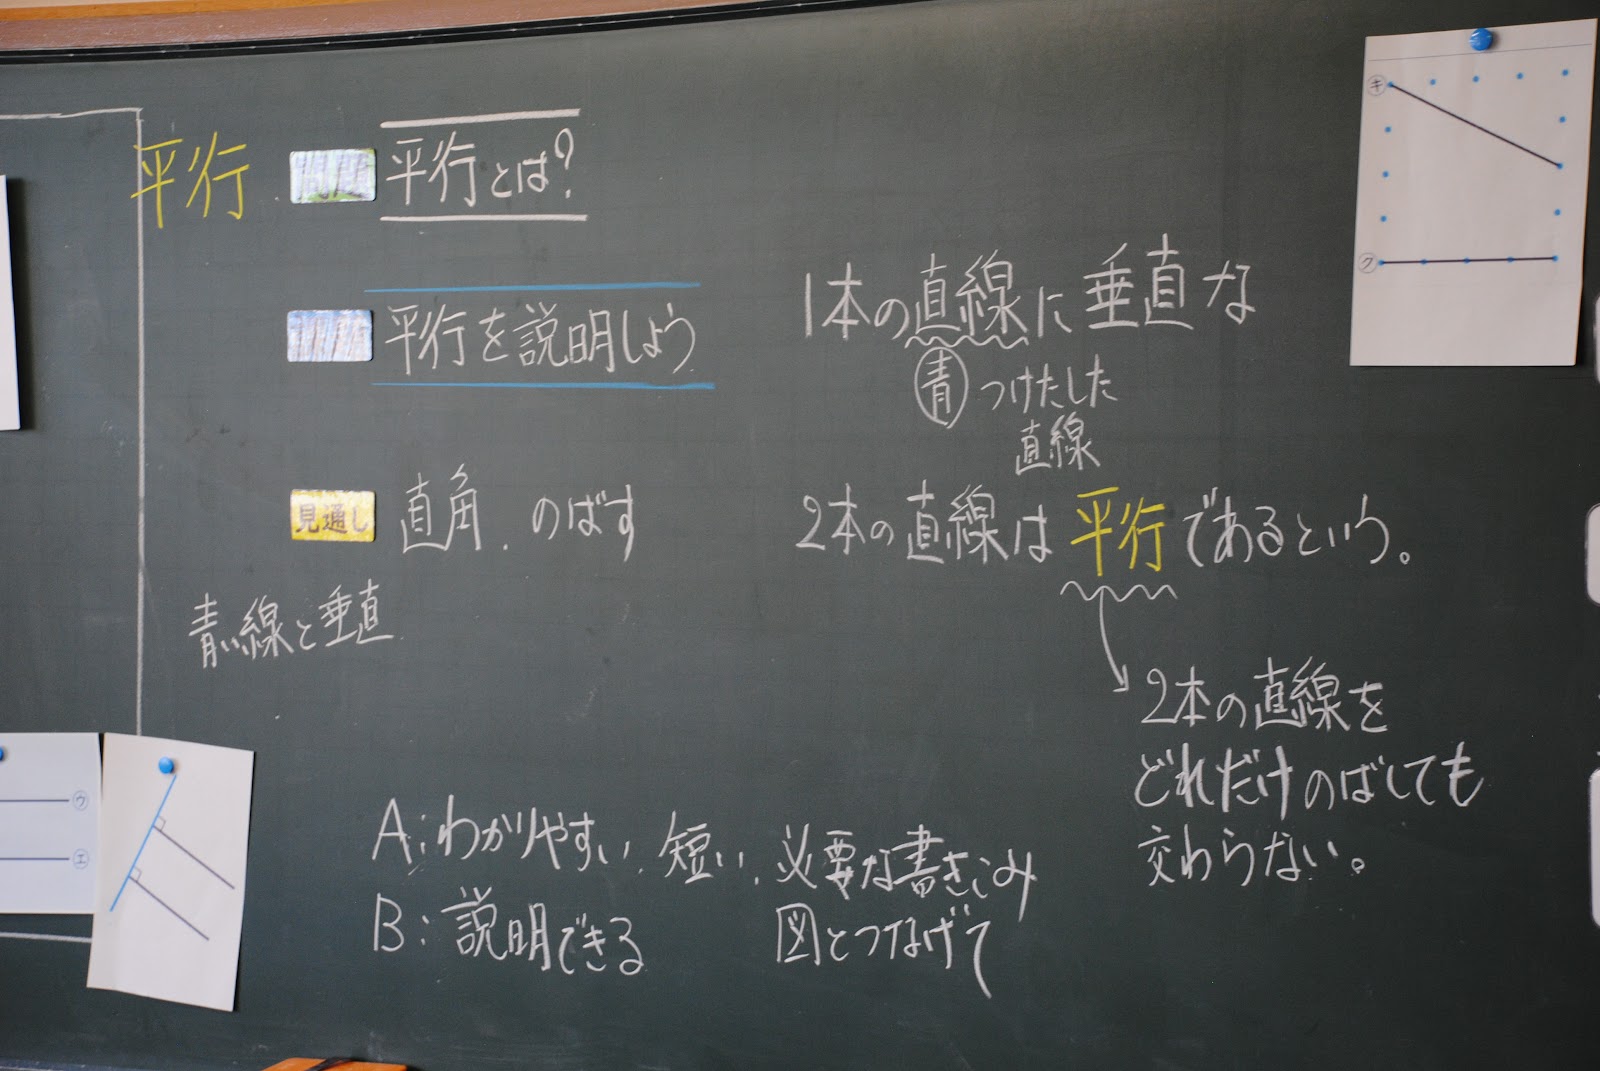 平行
問題 平行とは?
課題 平行を説明しよう
見通し 直角.のばす
青い線と垂直
A:わかりやすい.短い.必要な書きこみ
B:説明できる 図とつなげて
1本の直線に垂直な
青 つけたした
直線
2本の直線は平行であるという。
2本の直線を
どれだけのばしても
交わらない。
キ
ク
ウ
エ